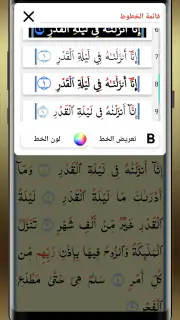 قائمة الخطوط
6
إِنَّآ أَنزَلْنَٰهُ فِى لَيْلَةِ ٱلْقَدْرِ ١
7
إِنَّآ أَنزَلْنَٰهُ فِى لَيْلَةِ ٱلْقَدْرِ ١
8
إِنَّآ أَنزَلْنَٰهُ فِى لَيْلَةِ ٱلْقَدْرِ ١
9
إِنَّآ أَنزَلْنَٰهُ فِى لَيْلَةِ ٱلْقَدْرِ ١
B تعريض الخط لون الخط
إِنَّآ أَنزَلْنَٰهُ فِى لَيْلَةِ ٱلْقَدْرِ ١ وَمَآ
أَدْرَىٰكَ مَا لَيْلَةُ ٱلْقَدْرِ ٢ لَيْلَةُ
ٱلْقَدْرِ خَيْرٌ مِّنْ أَلْفِ شَهْرٍ ٣ تَنَزَّلُ
ٱلْمَلَٰٓئِكَةُ وَٱلرُّوحُ فِيهَا بِإِذْنِ رَبِّهِم مِّن
كُلِّ أَمْرٍ ٤ سَلَٰمٌ هِىَ حَتَّىٰ مَطْلَعِ
ٱلْفَجْرِ ٥